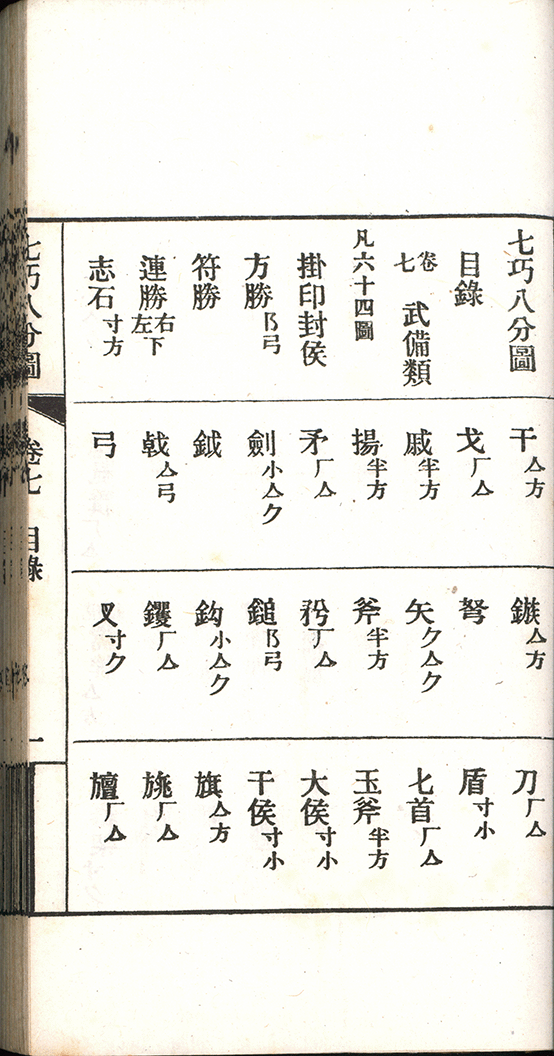 七巧八分圖
目錄
卷七 武備類
凡六十四圖
掛印封侯
方勝 阝弓
符勝
連勝 右左下
志石 寸方
干 亼方
戈 厂亼
戚 半方
揚 半方
矛 厂亼
劍 小亼ク
鉞
戟 亼弓
弓
鏃 亼方
弩
矢 ク亼ク
斧 半方
矜 厂亼
鎚 阝弓
鈎 小亼ク
钁 厂亼
叉 寸ク
刀 厂亼
盾 寸小
匕首 厂亼
玉斧 半方
大侯 寸小
干侯 寸小
旗 亼方
旐 厂亼
旜 厂亼
七巧八分圖 卷七 目錄 一